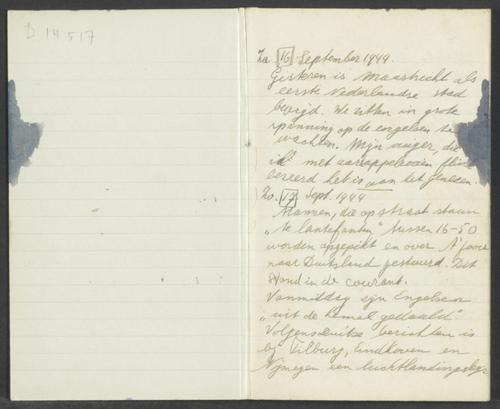 D 14517
Za 16 September 1944.
Gisteren is Maastricht als
eerste Nederlandse stad
bevrijd. We zitten in grote
spanning op de te
wachten. Mijn vinger, die
ik met aardappelboven
heeft is aan het genezen.
Zo. 17 Sept. 1944
Mannen, die op straat staan
„te lantefanten” tussen 16-50
worden opgepikt en over A'foort
naar Duitsland gestuurd. Dit
stond in de courant.
Vanmiddag zijn Engelsen
„uit de hemel gedaald”
Volgens Duitse berichten is
bij Tilburg, Eindhoven en
Nijmegen een luchtlandingsleger